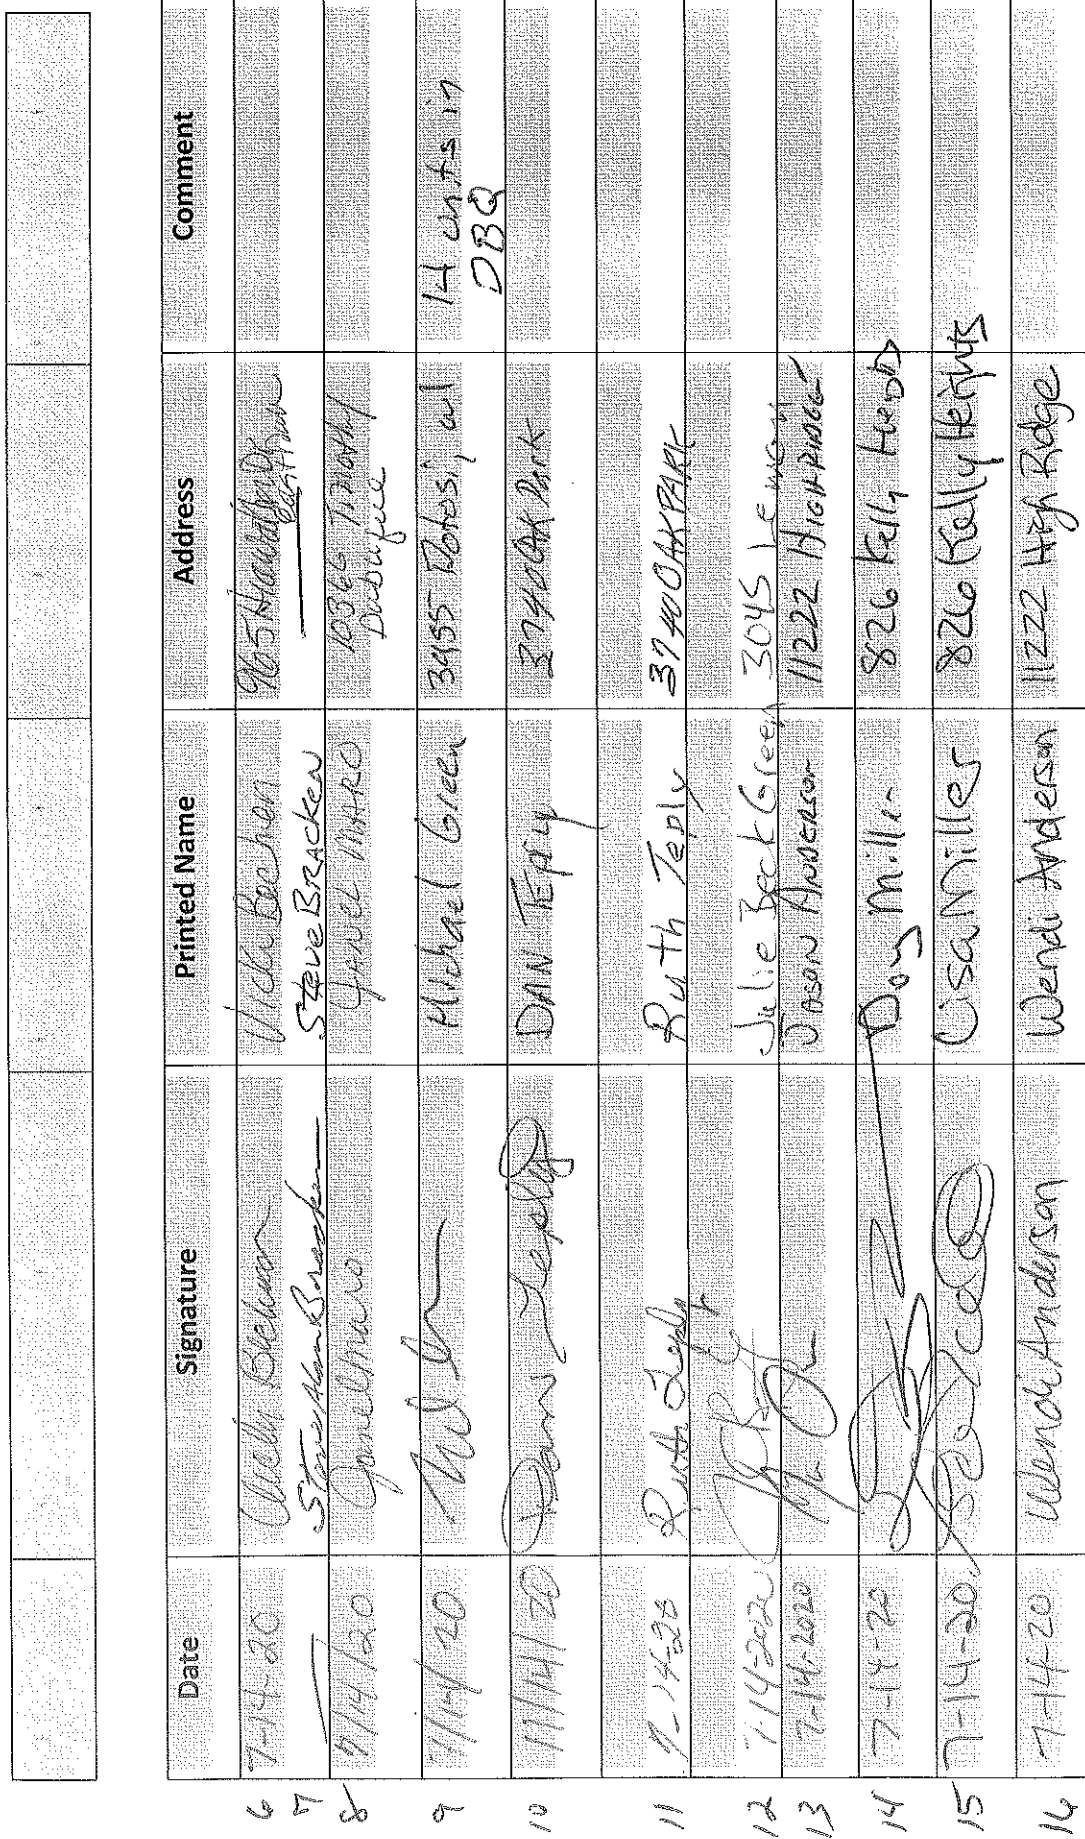 Date Signature Printed Name Address Comment
6 7-14-20 Vicki Bechen 965
7 Steve Bracken
8 7/14/20 Janel Maro 10366 Timothy
Dubuque
9 7/14/20 Michael Green 3495 Potosi, WI 14 units in
DBQ
10 7/14/20 Dan Teply DAN TEPly 3740 OAK Park
11 7-14-20 Ruth Teply Ruth Teply 3740 OAK PARK
12 7-14-2020 Julie Beck Green 3045
13 7-14-2020 JASON ANDERSON 11222 HIGH RIDGE
14 7-14-20 Roy Miller 826 Kelly
15 7-14-20 Lisa Miller 826 Kelly Heights
16 7-14-20 Wendi Anderson Wendi Anderson 11222 High Ridge